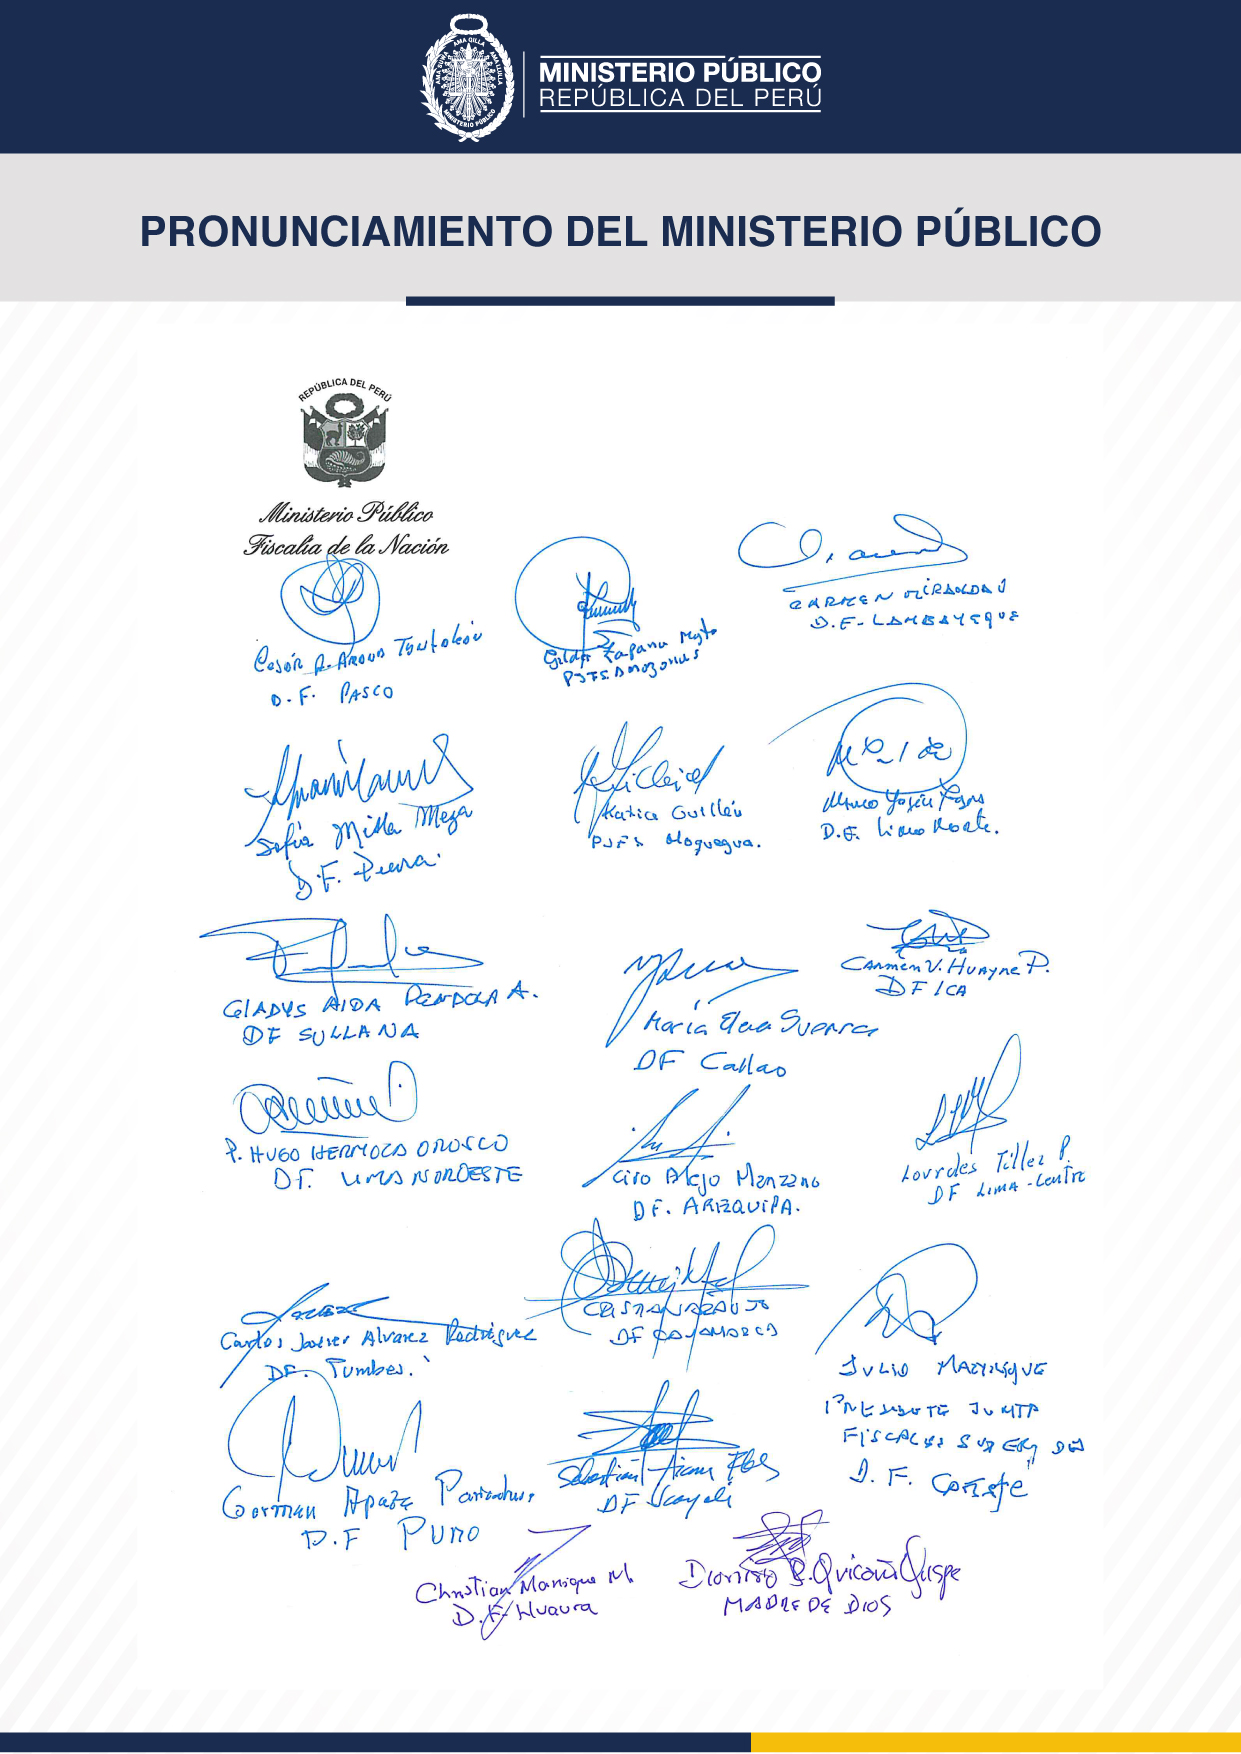 MINISTERIO PÚBLICO
REPÚBLICA DEL PERÚ
PRONUNCIAMIENTO DEL MINISTERIO PÚBLICO
REPÚBLICA DEL PERÚ
Ministerio Público
Fiscalía de la Nación
César A. Arauo
D.F. PASCO
Zapana
PJFS Amazonas
CARMEN MIRANDA J
D.F. LAMBAYEQUE
Sofía Milla Meza
D.F. Piura.
Katica Guillén
PJFS Moquegua.
Marco
D.F. Lima Norte.
GLADYS AIDA PENDOLA A.
DF SULLANA
María Elena Guerra
DF Callao
CARMEN V. HUAYRE P.
DF ICA
P. HUGO HERMOZA OROSCO
DF. LIMA NOROESTE
Ciro Alejo Manzano
DF. AREQUIPA.
Lourdes Tillez P.
DF LIMA-Centro
Carlos Javier Alvarez Rodríguez
DF. Tumbes.
CRISTIAN ARAUJO
DF CAJAMARCA
JULIO
PRESIDENTE JUNTA
FISCALES SUPERIORES
D.F. CAÑETE
German Apaza
D.F PUNO
Sebastián
DF Ucayali
Christian Manrique M.
D.F. Huaura
Dionisio Quispe
MADRE DE DIOS